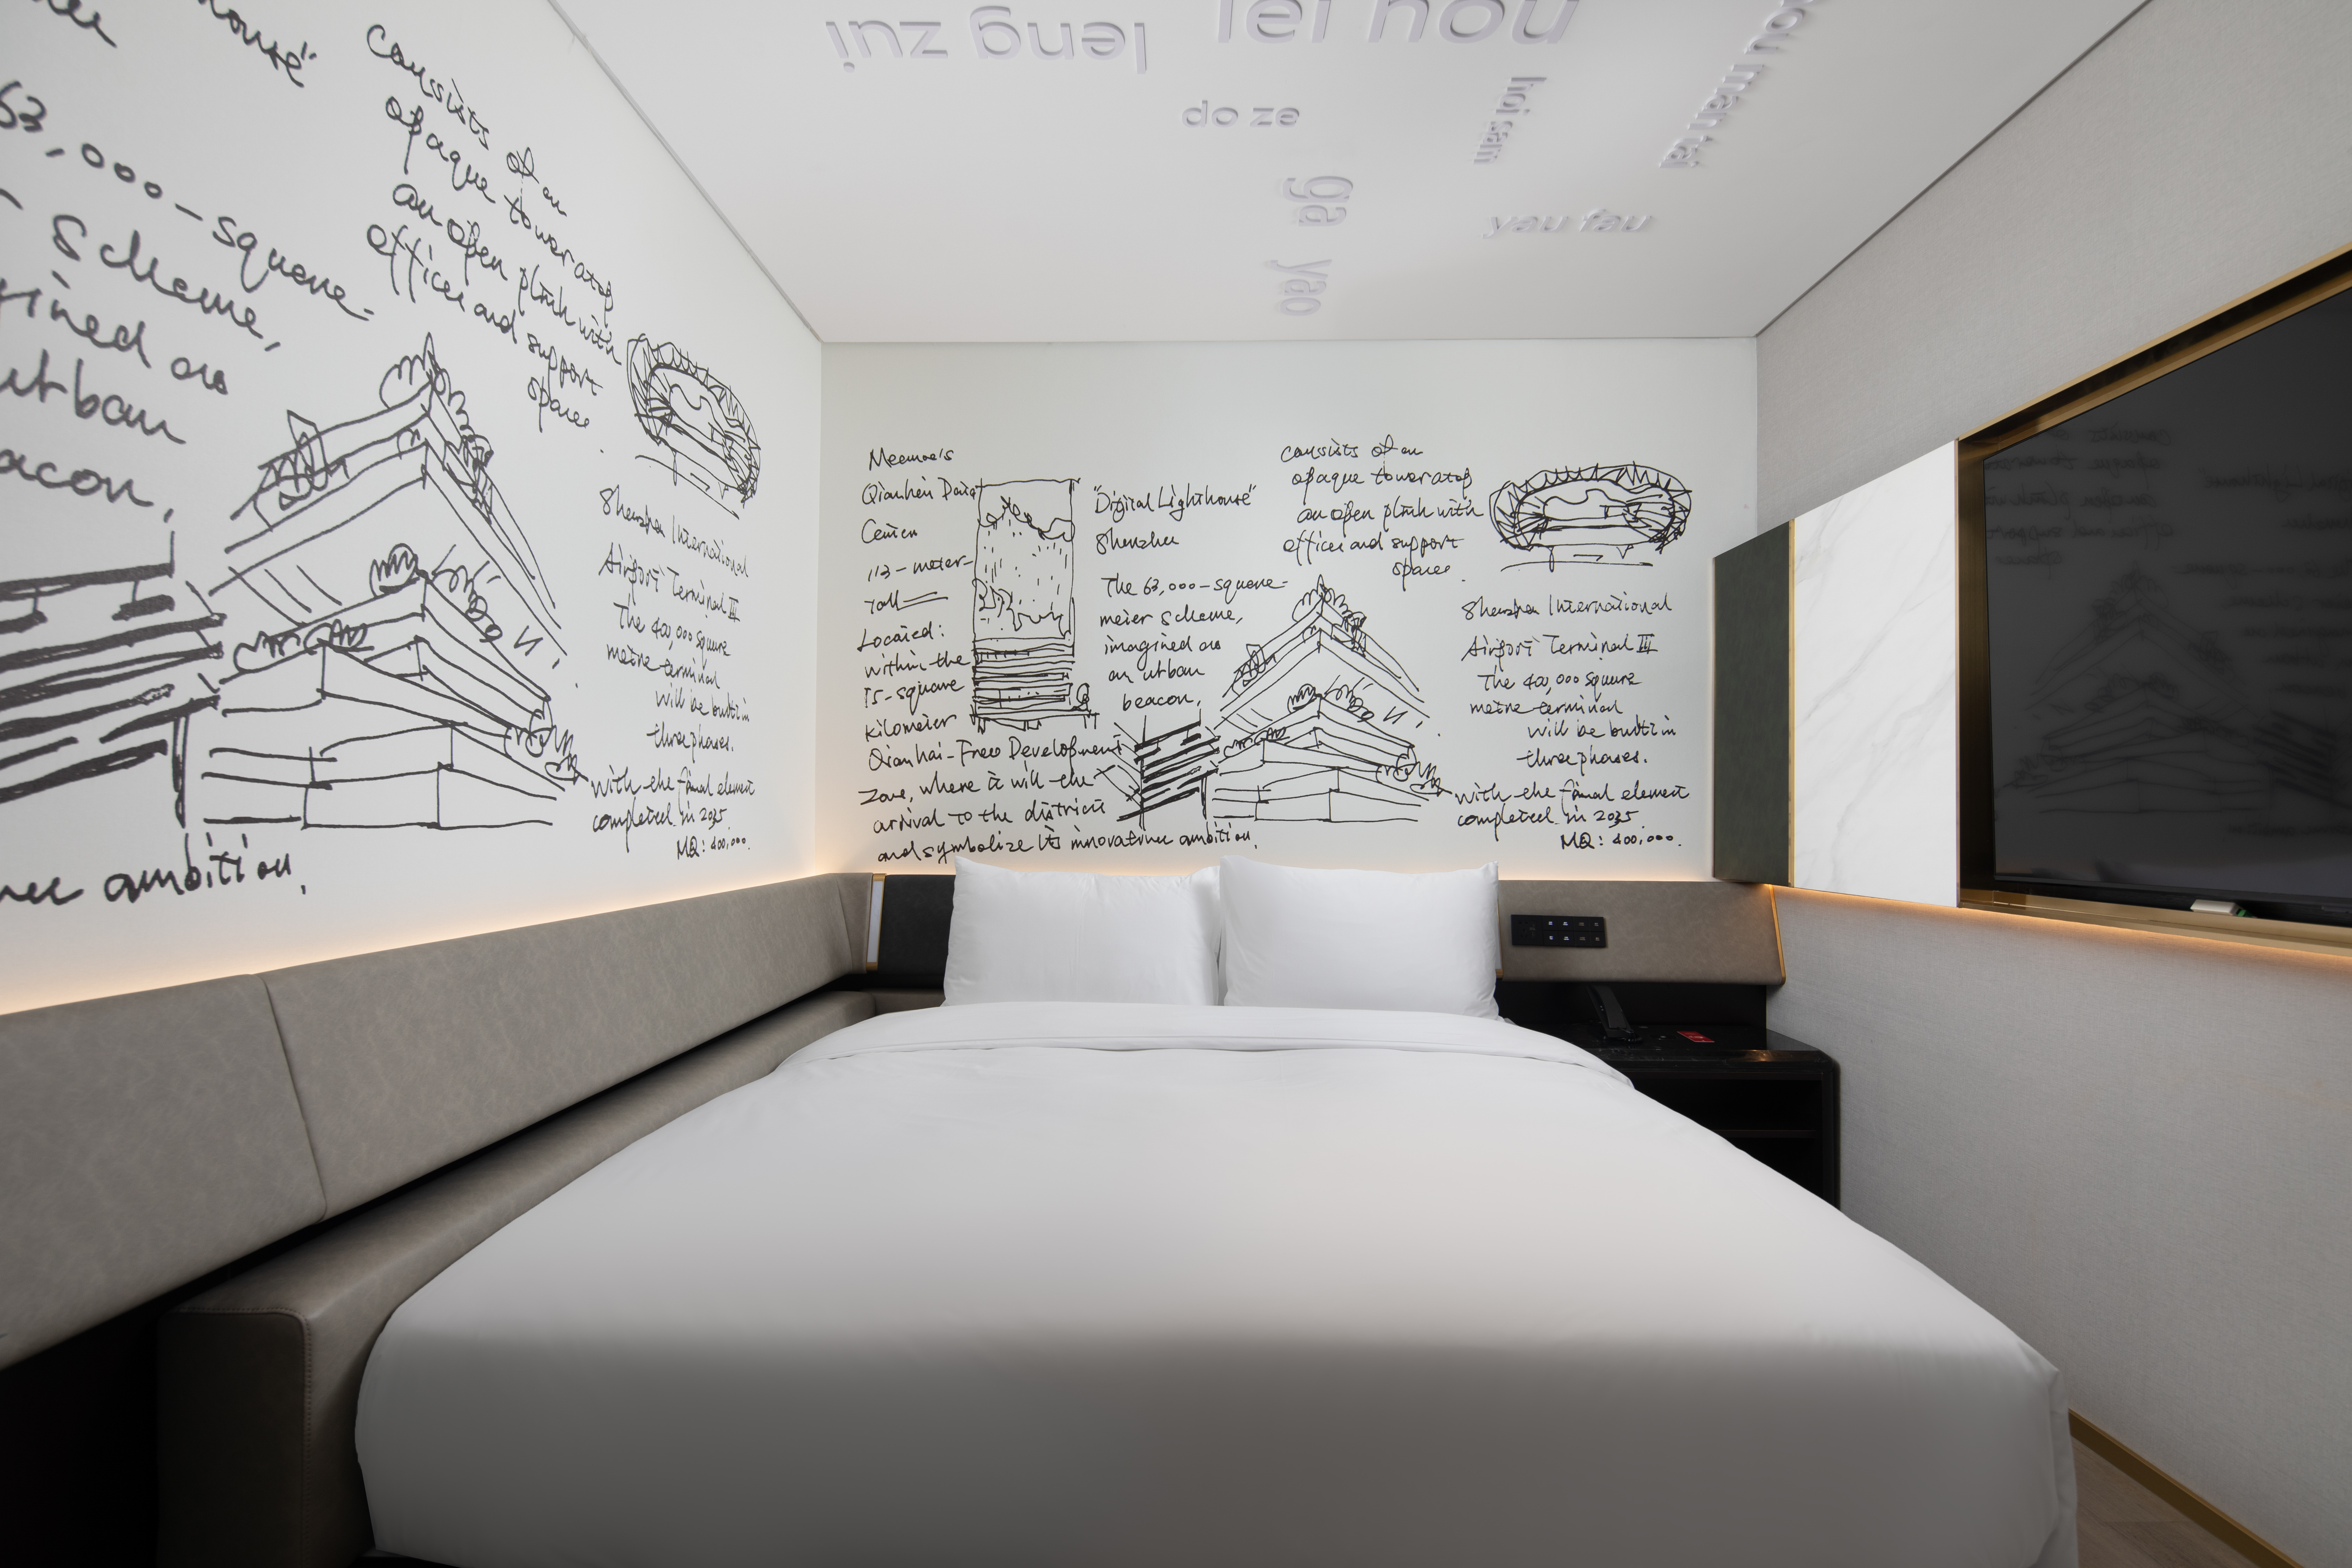 leng zui
lei hou
do ze
hoi sam
hou man tai
ga yao
yau fau
housé"
consists of an
opaque toweratop
an open plinh with
offices and support
space.
63,000-square-
scheme,
gined as
urban
eacon,
Shenzhen International
Airport Terminal III
The 40,000 square
metre terminal
will be built in
three phases.
with the final element
completed in 2035
MQ: 400,000.
ambition,
Mecanoo's
Qianhen Data
Center
113-meter-
Tall
Located:
within the
15-square
kilometer
Qianhai-Free Development
Zone, where it will the
arrival to the districts
and symbolize its innovative ambition,
"Digital Lighthouse"
Shenzhen
The 63,000-square-
meter scheme,
imagined as
an urban
beacon,
consists of an
opaque toweratop
an open plinh with
offices and support
space.
Shenzhen International
Airport Terminal III
The 40,000 square
metre terminal
will be built in
three phases.
with the final element
completed in 2035
MQ: 400,000.